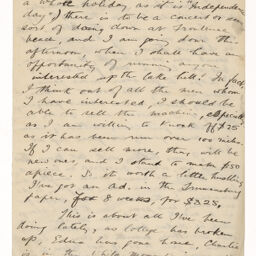 a whole holiday as it is "Independence
day". There is to be a concert or some
sort of doing down at
beach and I am going down the
afternoon, when I shall have an
opportunity of running anyone
interested up the lake hill. In fact,
I think out of all the men whom
I have interested, I should be
able to sell the machine, especially
as I am willing to knock off $25
as it has been run over 100 miles.
If I can sell more, they will be
new ones, and I stand to make $50
apiece. So it's worth a little hustling
I've got an ad. in the
paper, for 8 weeks, for $3.25,
This is about all I've been
doing lately, as College has broken
up, Edna has gone home, Charlie
is in the White